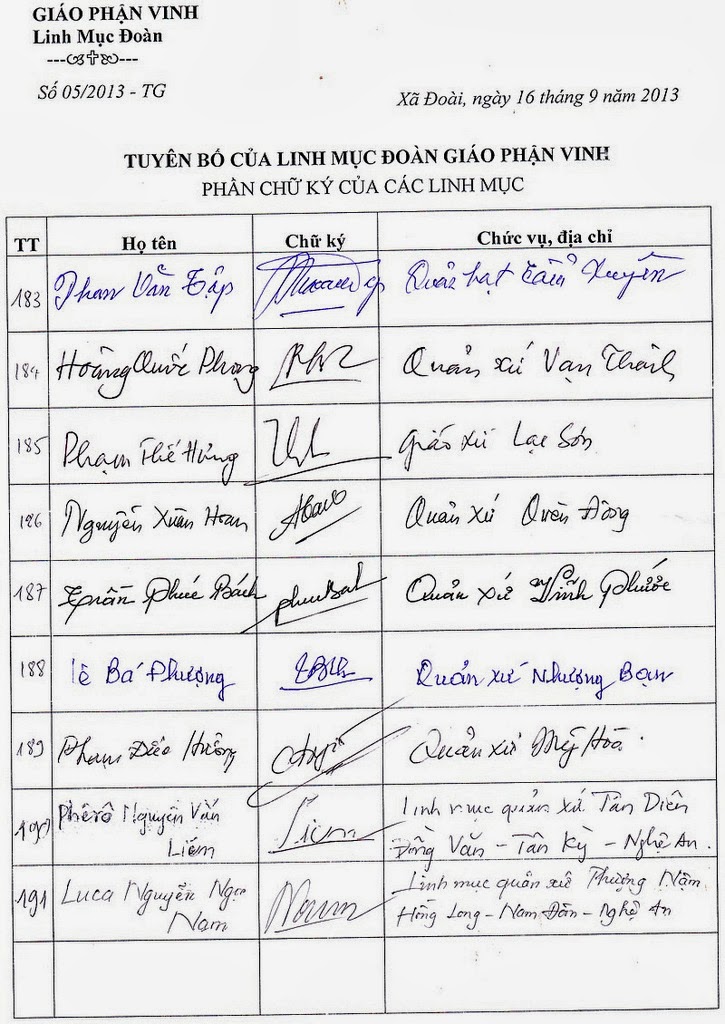 GIÁO PHẬN VINH
Linh Mục Đoàn
Số 05/2013 - TG
Xã Đoài, ngày 16 tháng 9 năm 2013
TUYÊN BỐ CỦA LINH MỤC ĐOÀN GIÁO PHẬN VINH
PHẦN CHỮ KÝ CỦA CÁC LINH MỤC
TT Họ tên Chữ ký Chức vụ, địa chỉ
183 Phan Văn Tập Quản hạt Cẩm Xuyên
184 Hoàng Quốc Phong Quản xứ Vạn Thành
185 Phạm Thế Hưng Giáo xứ Lạc Sơn
186 Nguyễn Xuân Hoan Quản xứ Quèn Đông
187 Trần Phúc Bách Quản xứ Vĩnh Phước
188 Lê Bá Phượng Quản xứ Nhượng Bạn
189 Phạm Hường Quản xứ Mỹ Hòa.
190 Phêrô Nguyễn Văn Liêm Linh mục quản xứ Tân Diên
Liêm Đồng Văn - Tân Kỳ - Nghệ An.
191 Luca Nguyễn Ngọc Linh mục quản xứ Thượng Nậm
Nam Nam Hồng Long - Nam Đàn - Nghệ An